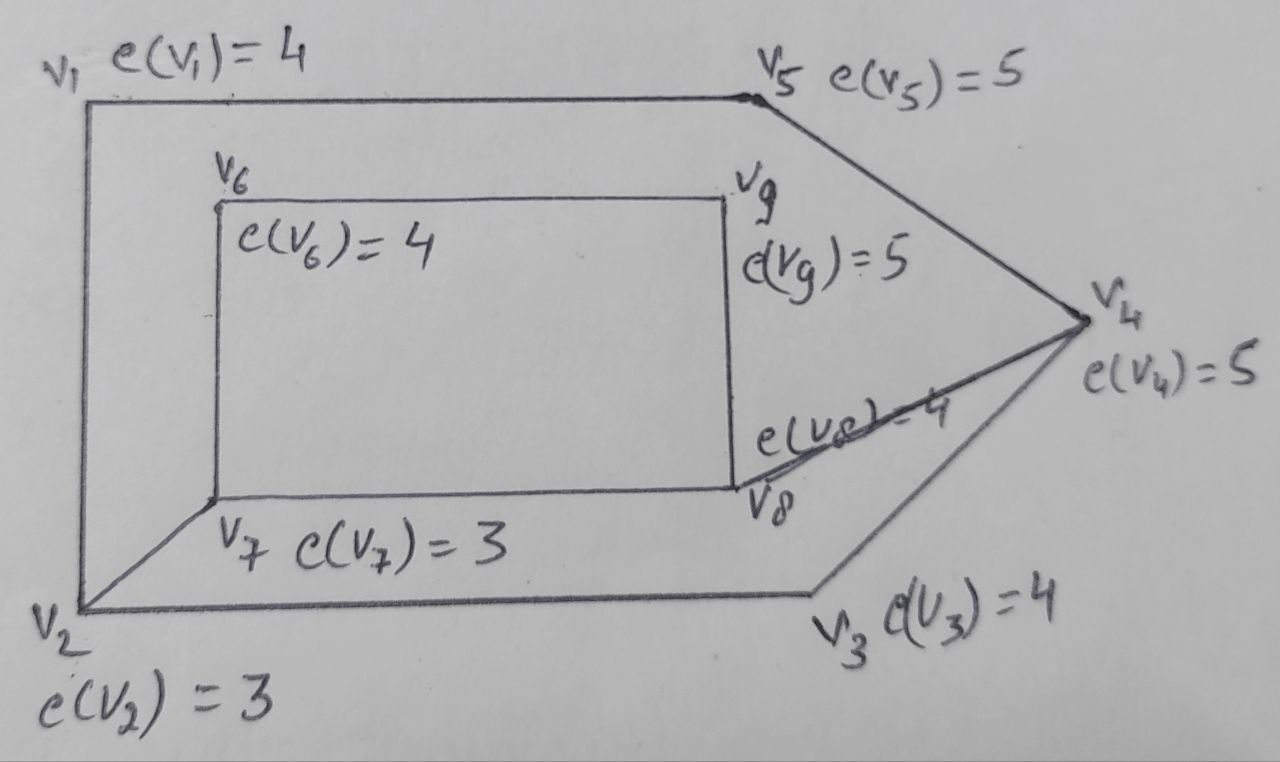 v₁ e(v₁) = 4
v₅ e(v₅) = 5
v₆
e(v₆) = 4
v₉
e(v₉) = 5
v₄
e(v₄) = 5
e(v₈) = 4
v₈
v₇ e(v₇) = 3
v₃ e(v₃) = 4
v₂
e(v₂) = 3